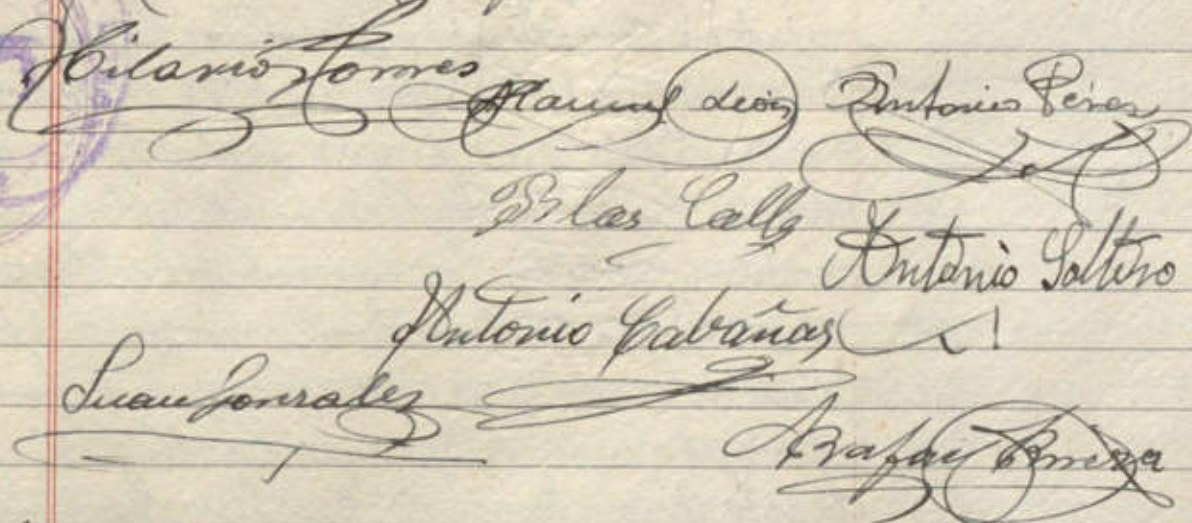 Hilario Torres
Manuel León
Antonio Pérez
Blas Calle
Antonio Soltero
Antonio Cabañas
Juan Gonzales
Rafael